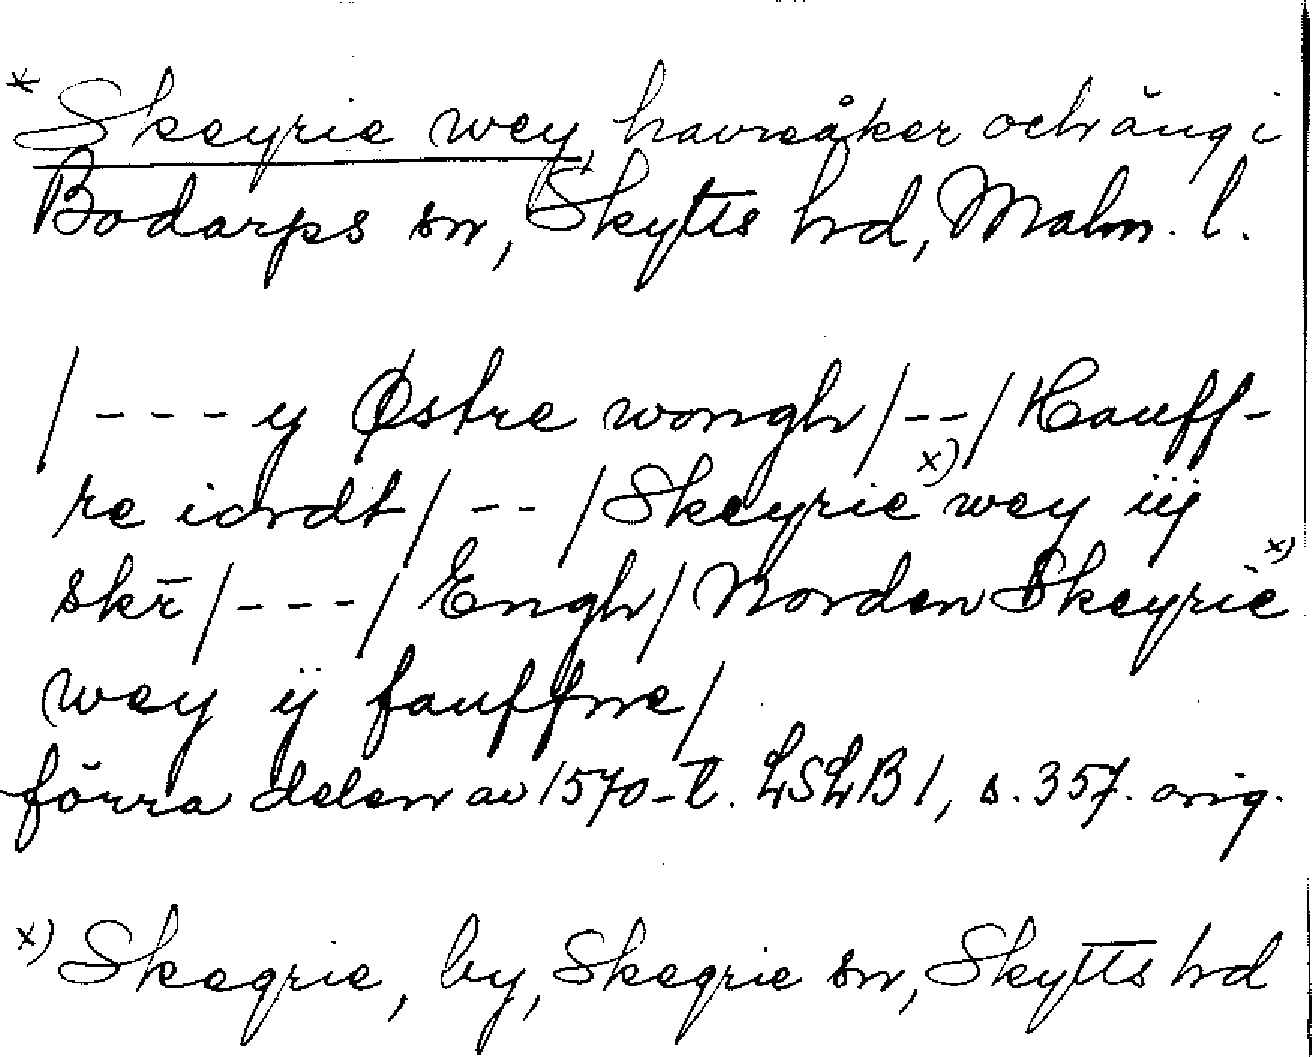 * Skeyrie wey, havreåker och äng i
Bodarps sn, Skytts hrd, Malm. l.
/---y Østre wongh/--/Hauff-
re iordt/--/Skeyrie x) wey iij
skr̄/---/Engh/Norden Skeyrie x)
wey ij fauffne/
förra delen av 1570-t. LSLB 1, s. 357. orig.
x) Skegrie, by, Skegrie sn, Skytts hrd